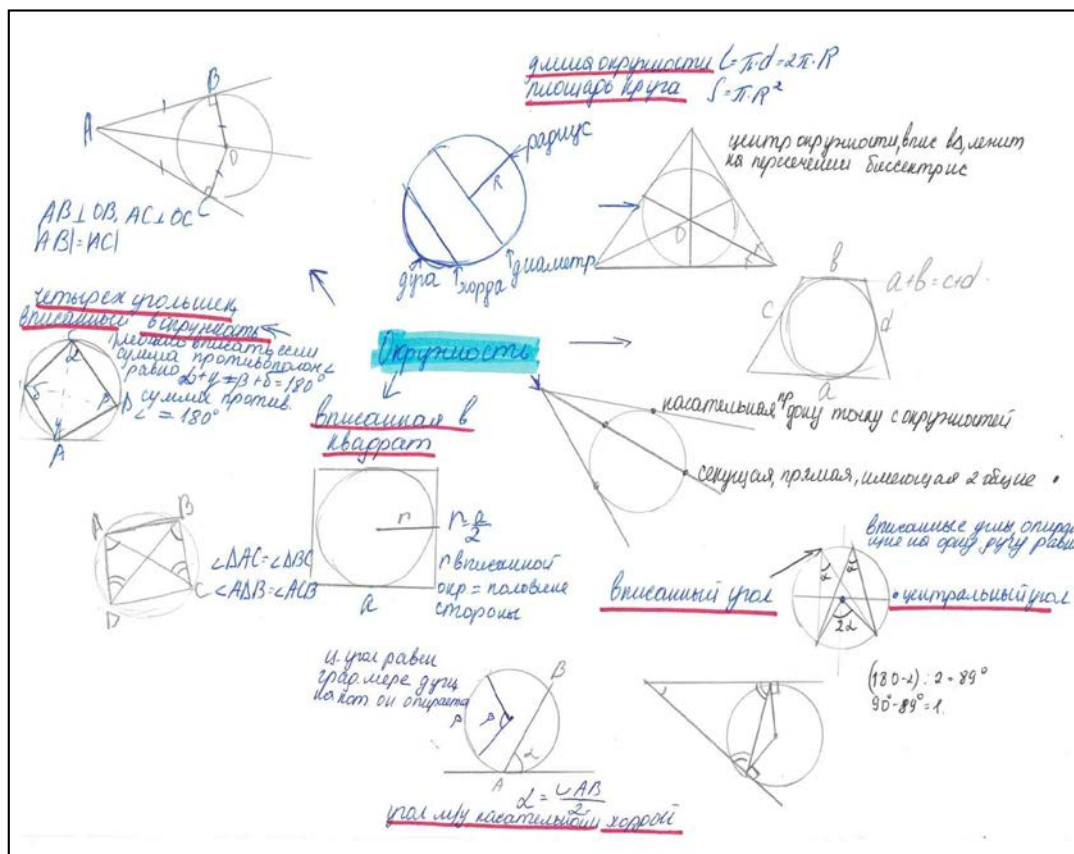 длина окружности C=π·d=2π·R
площадь круга S=π·R²
B
A
O
C
AB⊥OB, AC⊥OC
|AB|=|AC|
радиус
R
дуга
хорда
диаметр
центр окружности, впис в Δ, лежит
на пересечении биссектрис
O
b
a+b=c+d
c
d
a
четырехугольник,
вписанный в окружность
можно вписать, если
сумма противополож ∠
равно α+γ=β+δ=180°
сумма против.
∠ = 180°
C
α
δ
β
D
γ
A
Окружность
вписанная в
квадрат
r
r=a/2
r вписанной
окр = половине
стороны
a
касательная пр
одну точку с окружностью
секущая, прямая, имеющая 2 общие •
A
B
C
D
∠DAC=∠DBC
∠ADB=∠ACB
вписанные углы, опираю
щие на одну дугу равны
вписанный угол
α
α
2α
• центральный угол
ц. угол равен
град мере дуги,
на кот он опирается
β
β
B
α
A
α=◡AB/2
угол м/у касательной и хордой
(180-2):2=89°
90°-89°=1.